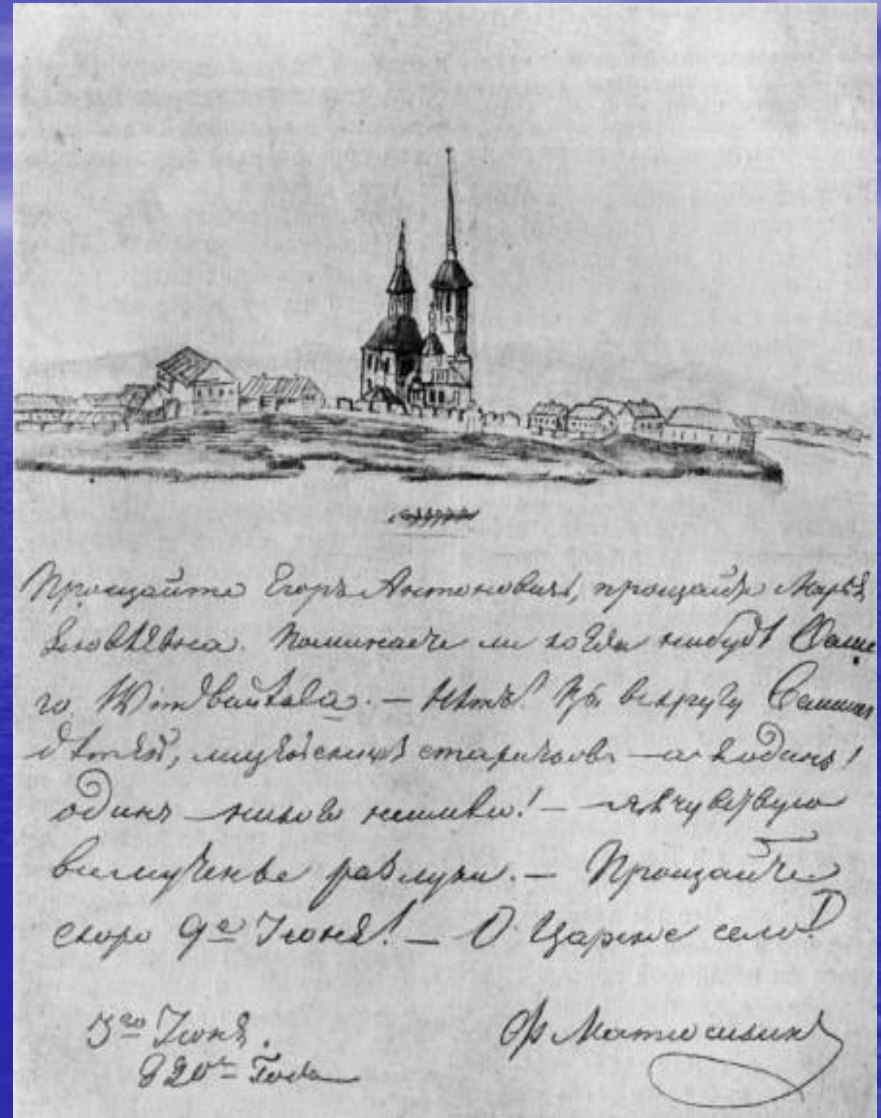 Прощайте Егоръ Антоновичь, прощайте Марья
Яковлѣвна. Поминаете ли когда нибудь Ваше
го — Нѣтъ! Вы вкругу Вашихъ
дѣтей, лицейскихъ старичковъ — а я одинъ!
одинъ — никого неимѣю! — я чувствую
мученье разлуки. — Прощайте
скоро 9е Іюня! — О Царское село!
3го Іюня.
820го Года
Ф Матюшкинъ